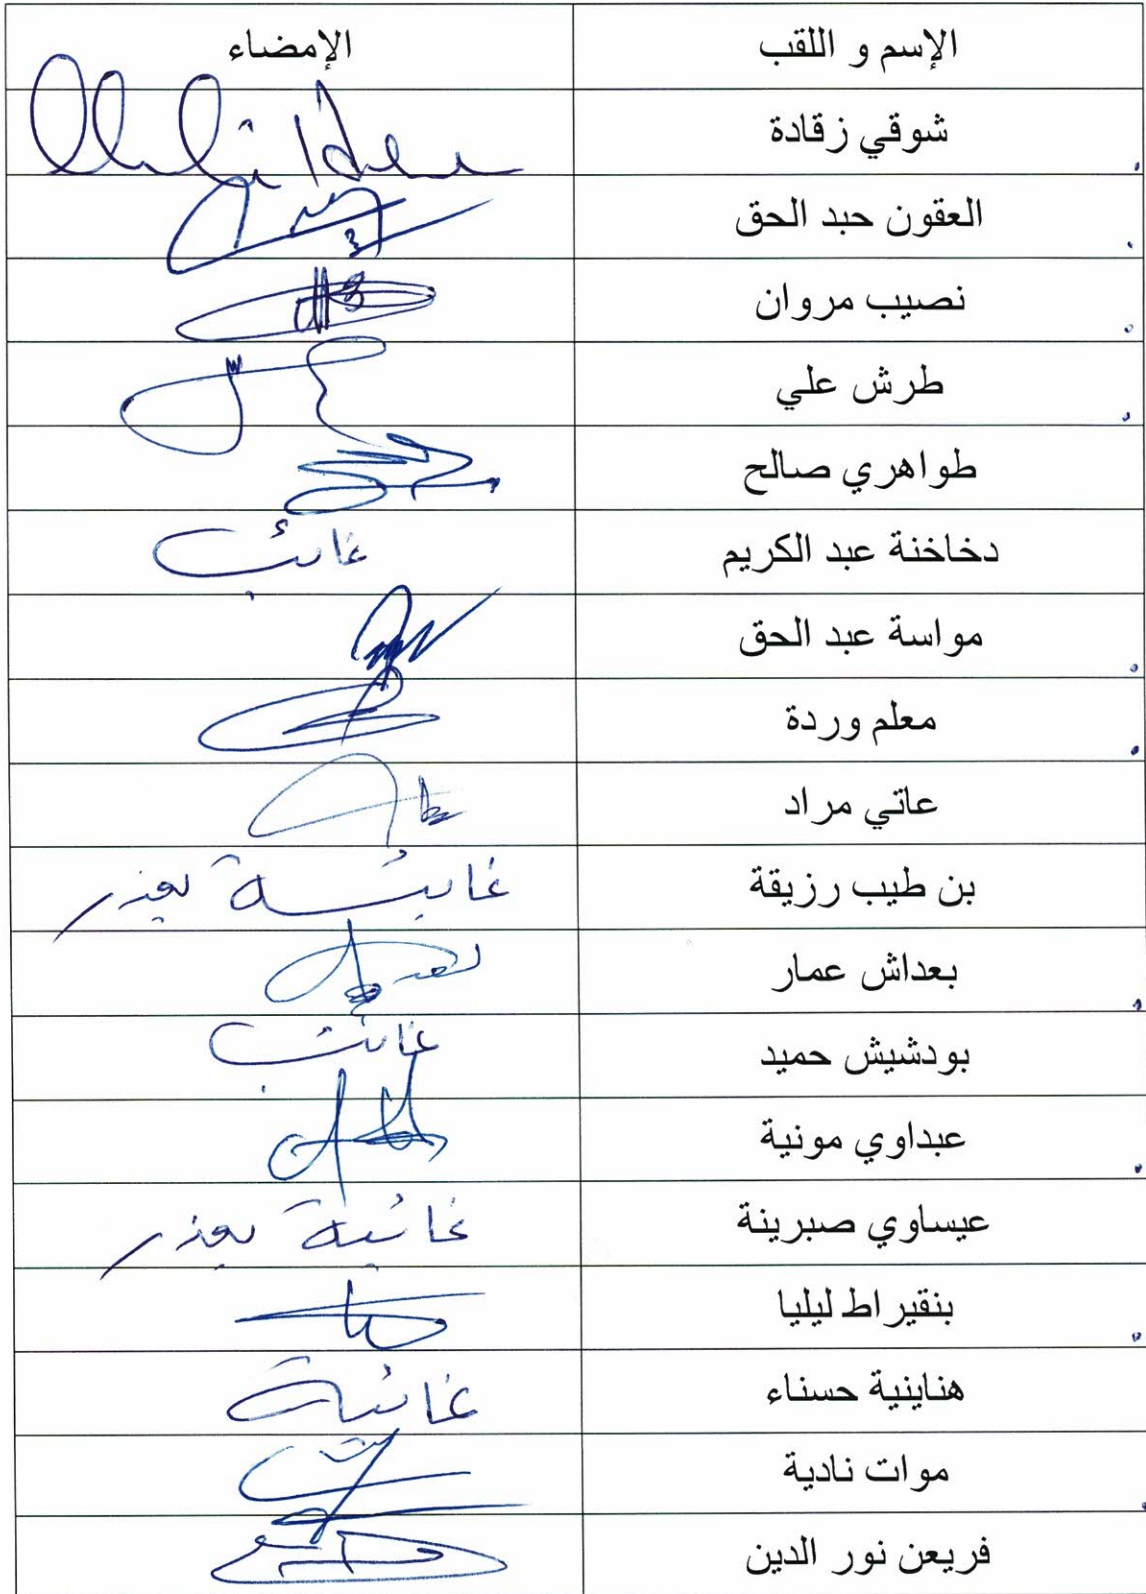 الإسم و اللقب الإمضاء
شوقي زقادة
العقون حبد الحق
نصيب مروان
طرش علي
طواهري صالح
دخاخنة عبد الكريم غائب
مواسة عبد الحق
معلم وردة
عاتي مراد
بن طيب رزيقة غائبة بعذر
بعداش عمار
بودشيش حميد غائب
عبداوي مونية
عيساوي صبرينة غائبة بعذر
بنقيراط ليليا
هناينية حسناء غائبة
موات نادية
فريعن نور الدين